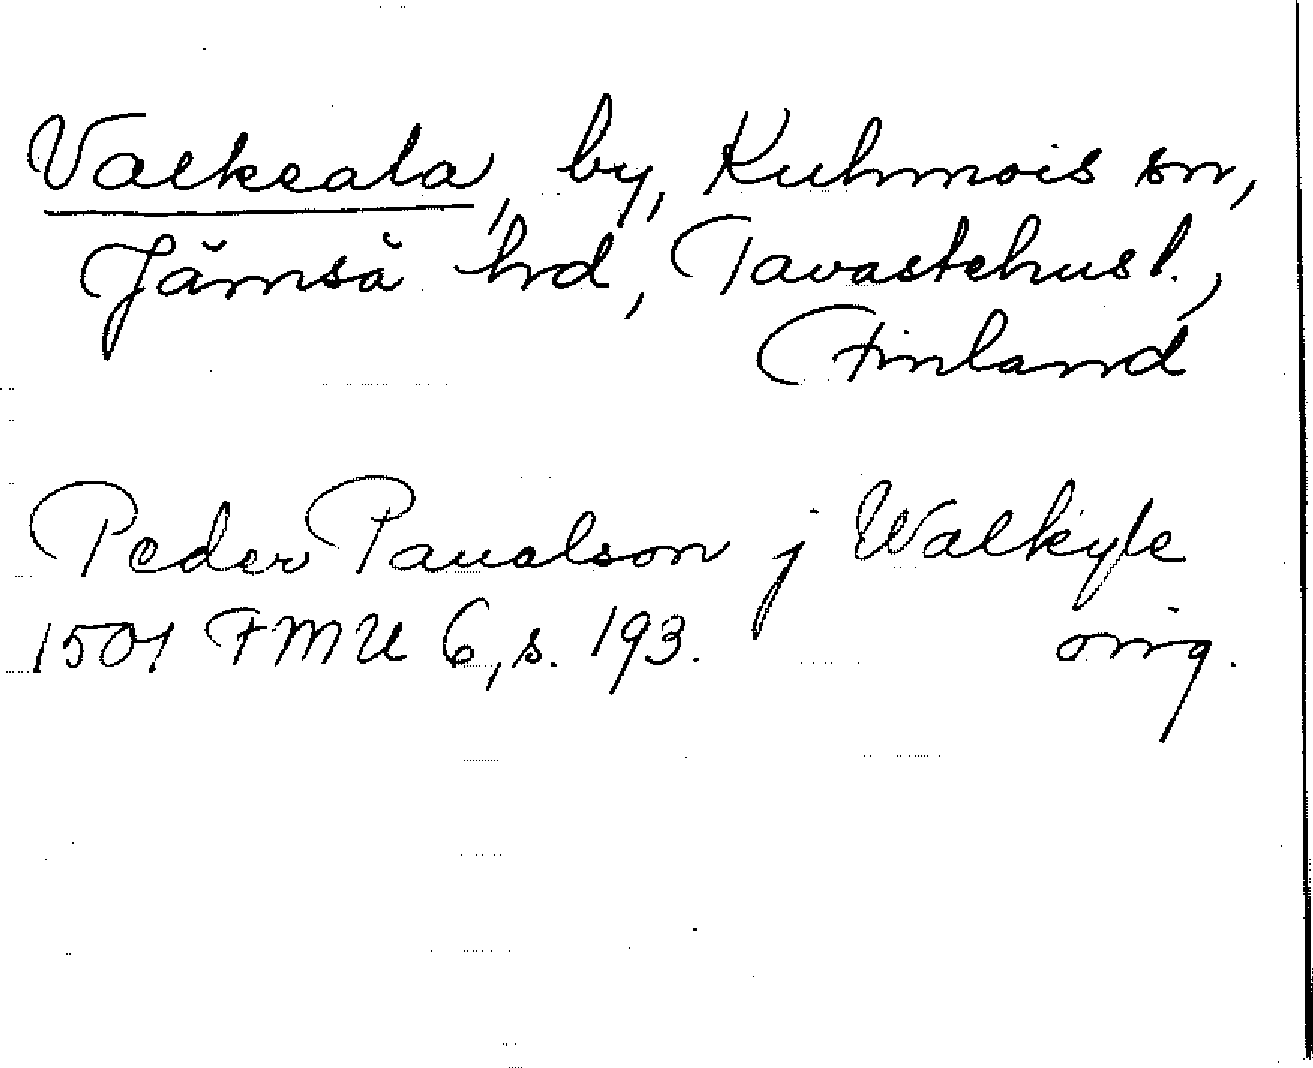 Valkeala, by, Kuhmois sn,
Jämsä hrd, Tavastehus l.,
Finland
Peder Paualson j Walkyle
1501 FMU 6, s. 193. orig.